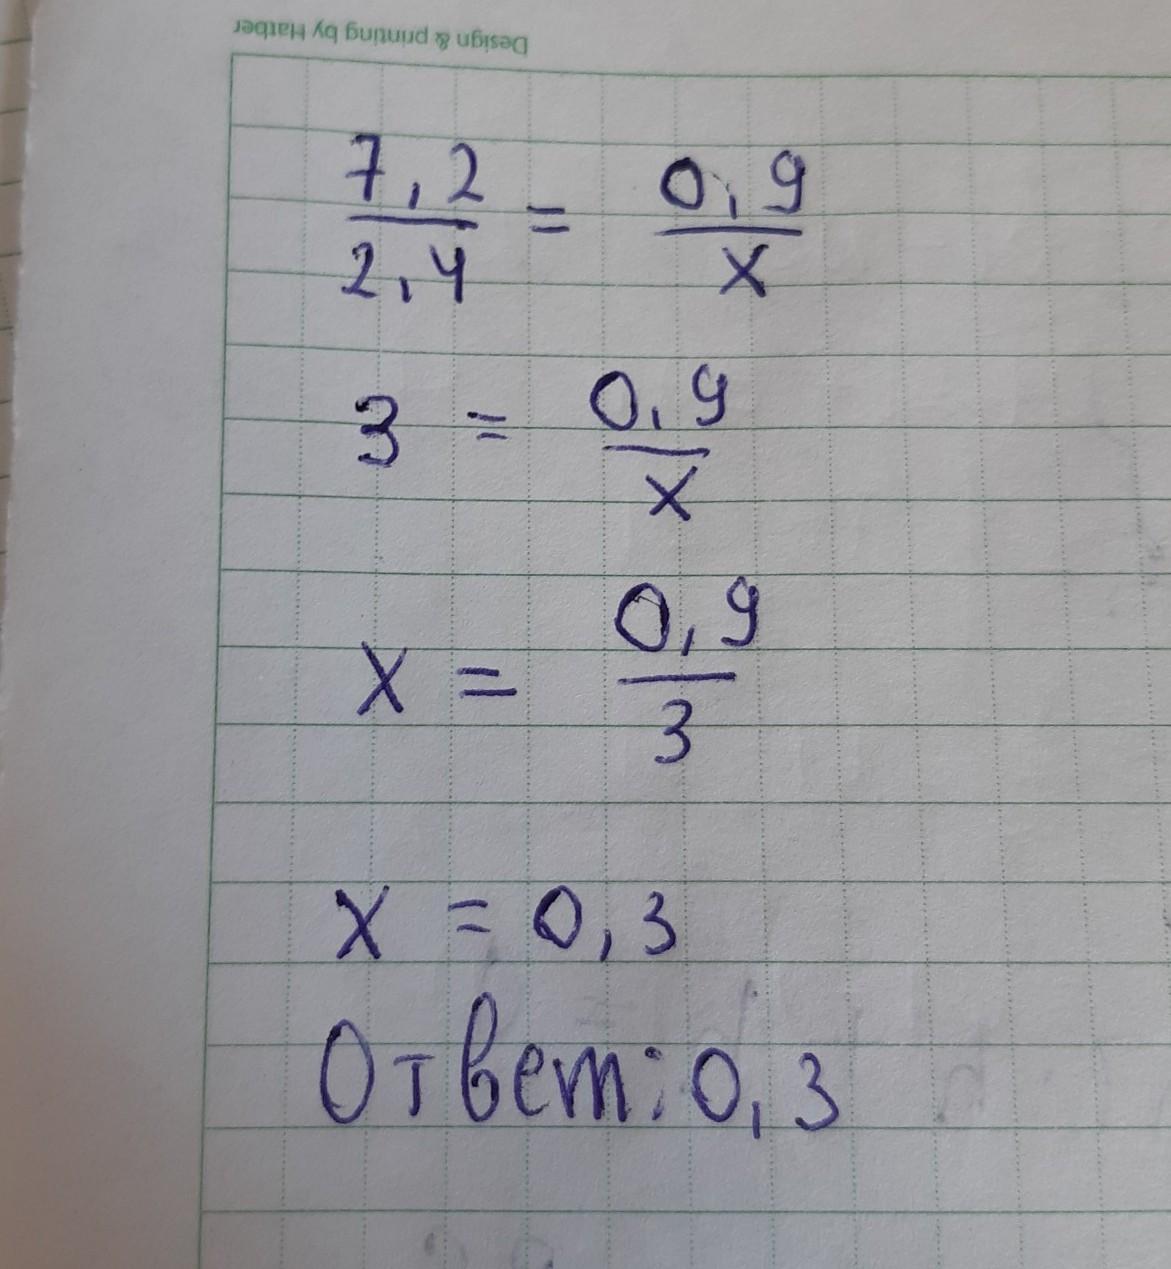 Design & printing by Hatber
7,2/2,4 = 0,9/x
3 = 0,9/x
x = 0,9/3
x = 0,3
Ответ: 0,3